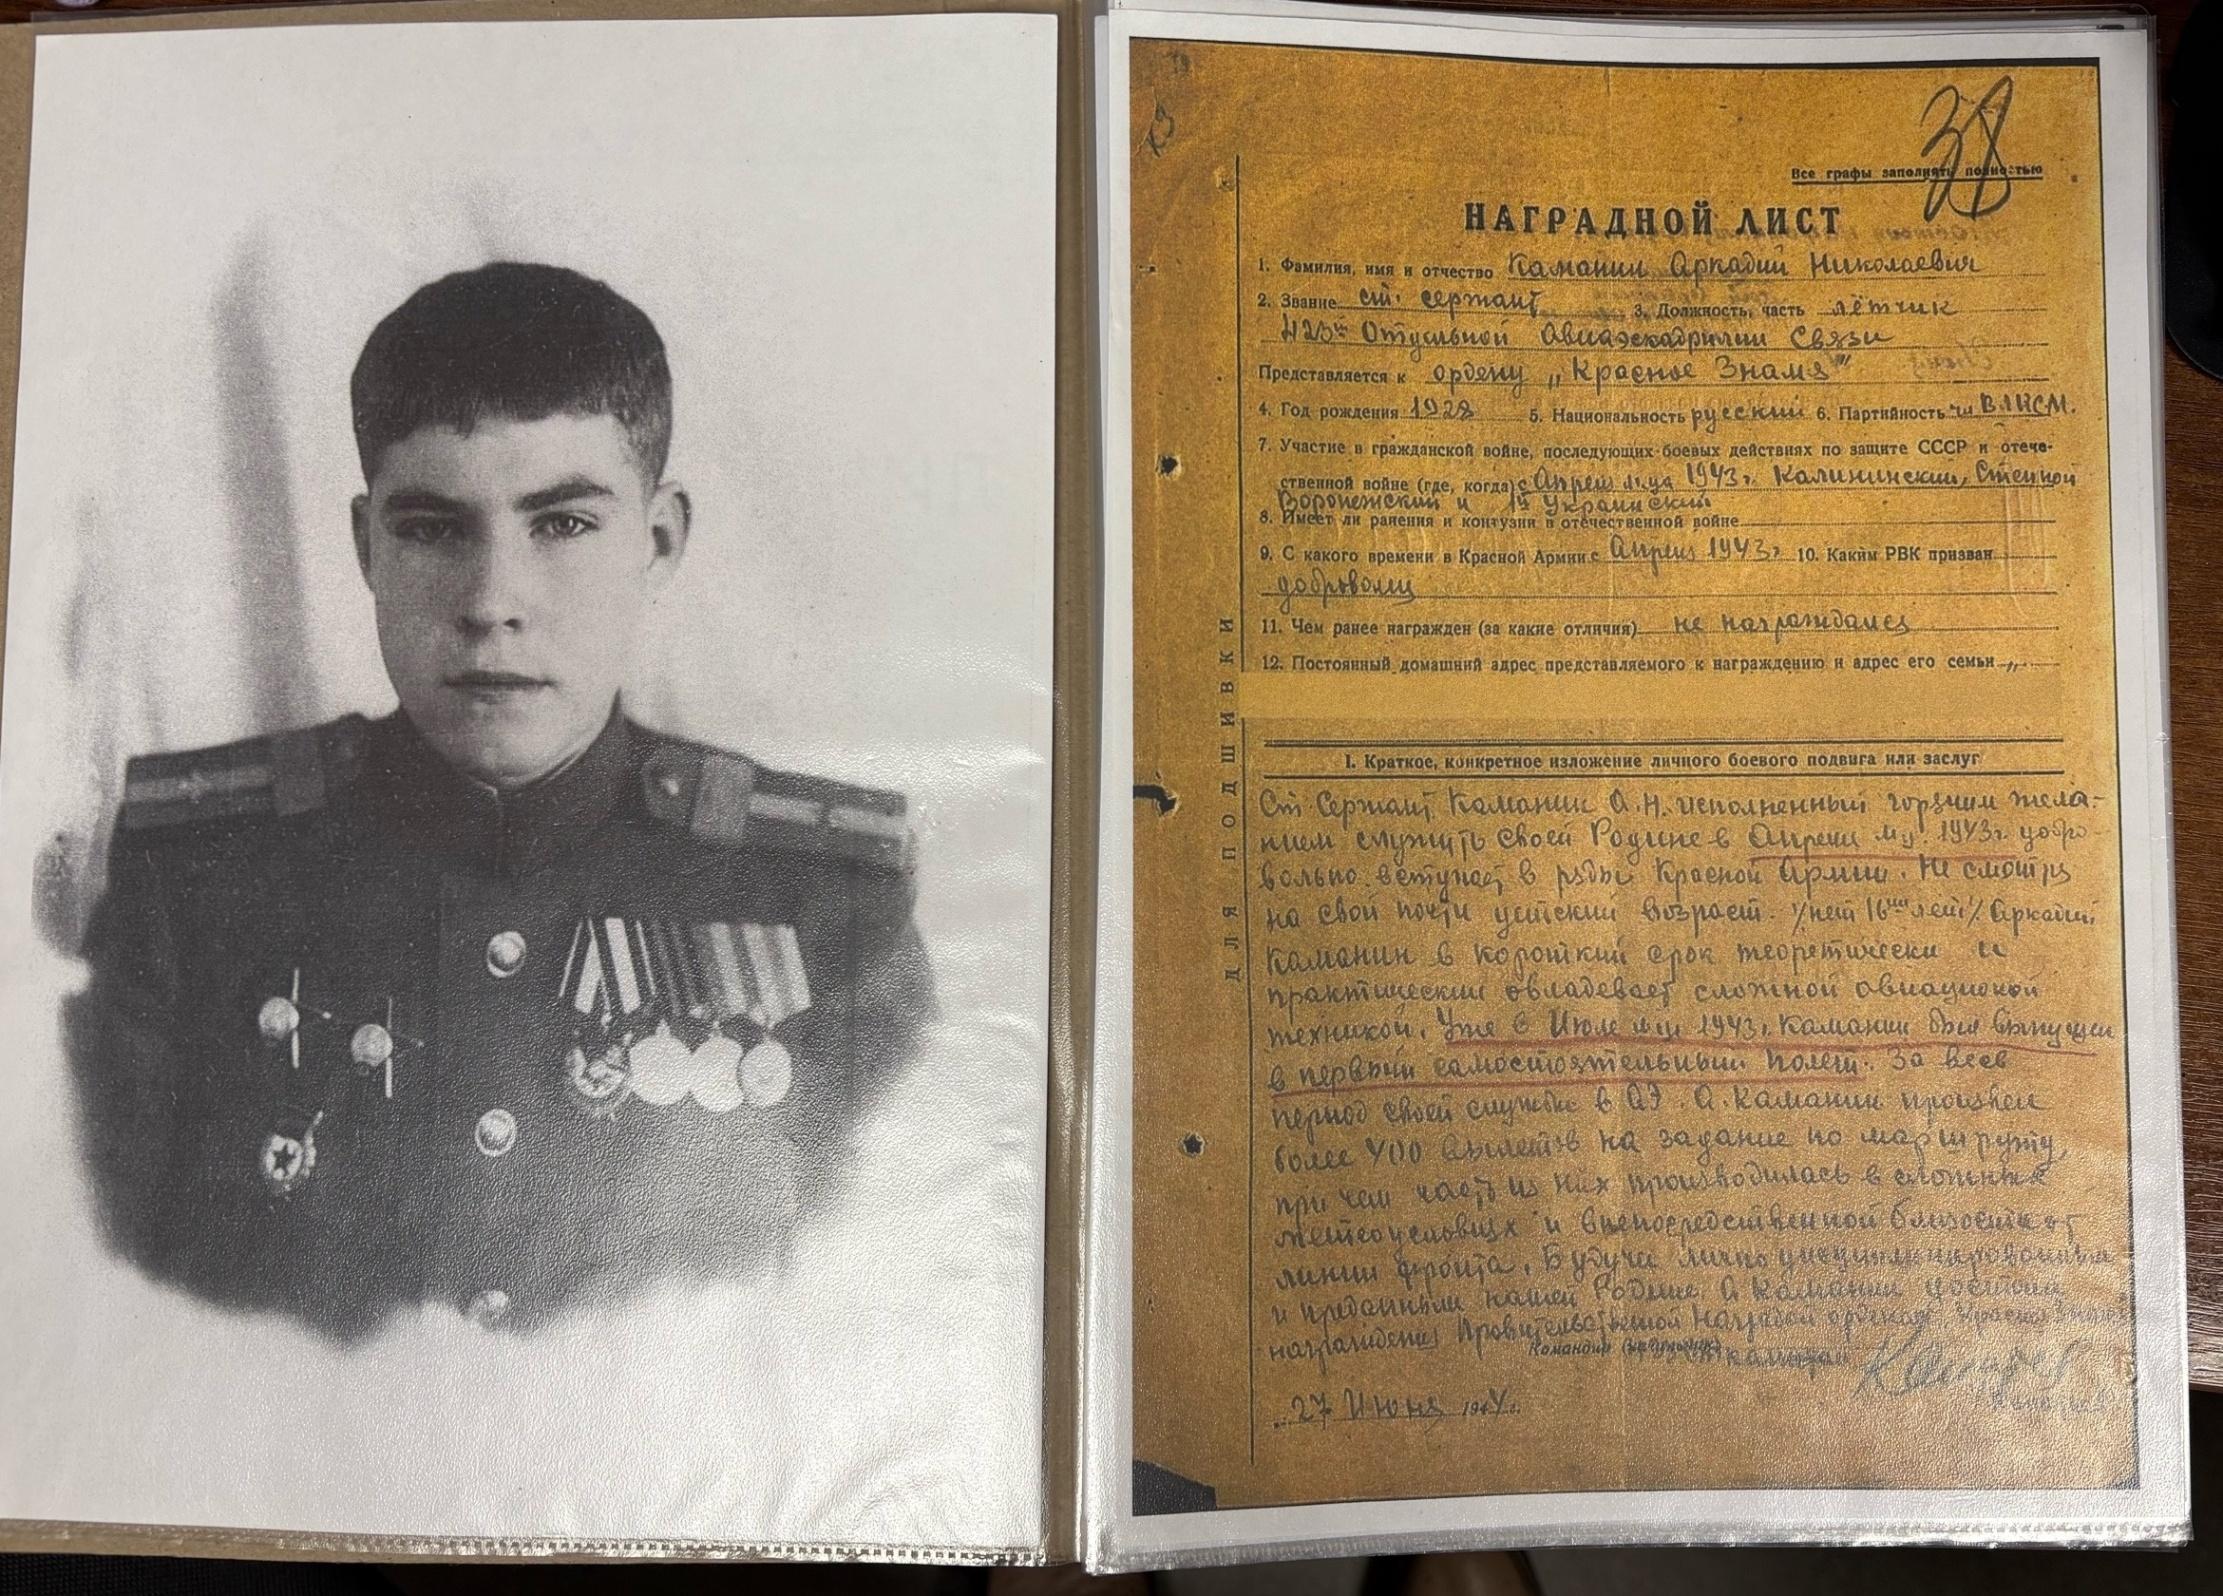 38
Все графы заполнять полностью
НАГРАДНОЙ ЛИСТ
1. Фамилия, имя и отчество Каманин Аркадий Николаевич
2. Звание ст. сержант 3. Должность, часть лётчик
423й Отдельной Авиаэскадрилии Связи
Представляется к ордену „Красное Знамя"
4. Год рождения 1928 5. Национальность русский 6. Партийность чл ВЛКСМ.
7. Участие в гражданской войне, последующих боевых действиях по защите СССР и отече-
ственной войне (где, когда) с Апреля м-ца 1943г. Калининский, Степной
Воронежский и 1й Украинский
8. Имеет ли ранения и контузии в отечественной войне
9. С какого времени в Красной Армии с Апреля 1943г 10. Каким РВК призван
доброволец
11. Чем ранее награжден (за какие отличия) не награждался
12. Постоянный домашний адрес представляемого к награждению и адрес его семьи „
ДЛЯ ПОДШИВКИ
I. Краткое, конкретное изложение личного боевого подвига или заслуг
Ст Сержант Каманин А.Н. исполненный горячим жела-
нием служить своей Родине в Апреле м-ц. 1943г. добро-
вольно вступает в ряды Красной Армии. Не смотря
на свой почти детский возраст. /нет 16ти лет/ Аркадий
Каманин в короткий срок теоретически и
практически овладевает сложной авиационой
техникой. Уже в Июле м-це 1943г Каманин был выпущен
в первый самостоятельный полет. За весь
период своей службы в АЭ. А. Каманин произвел
более 400 вылетов на задание по маршруту,
при чем часть из них производилась в сложных
метеоусловиях и в непосредственной близости от
линии фронта. Будучи лично дисциплинированным
и преданным нашей Родине А Каманин достоин
награждения Правительственной Наградой орденом „Красное Знамя"
Командир (начальник)
27 Июня 1944г.